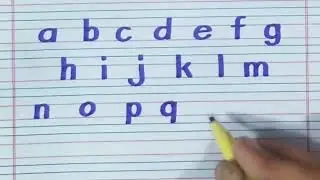 a b c d e f g
h i j k l m
n o p q